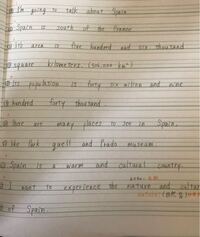 I'm going to talk about Spain
Spain is south of the France
Its area is five hundred and six thousand
square kilometers. (506,000 km²)
Its population is forty six milion and nine
hundred forty thousand.
There are many places to see in Spain.
the Park guell and Prado museum.
Spain is a warm and cultural country.
I want to experience the nature and cultur
of Spain.